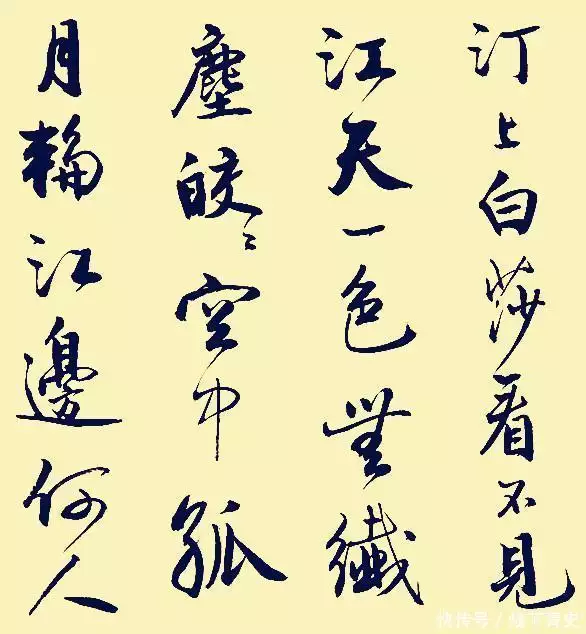 汀上白莎看不見
江天一色無纖
塵皎〻空中孤
月輪江邊何人
快传号/